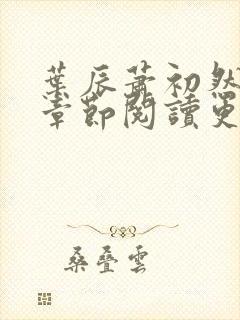 葉辰蕭初然
章節閱讀更
桑叠雲